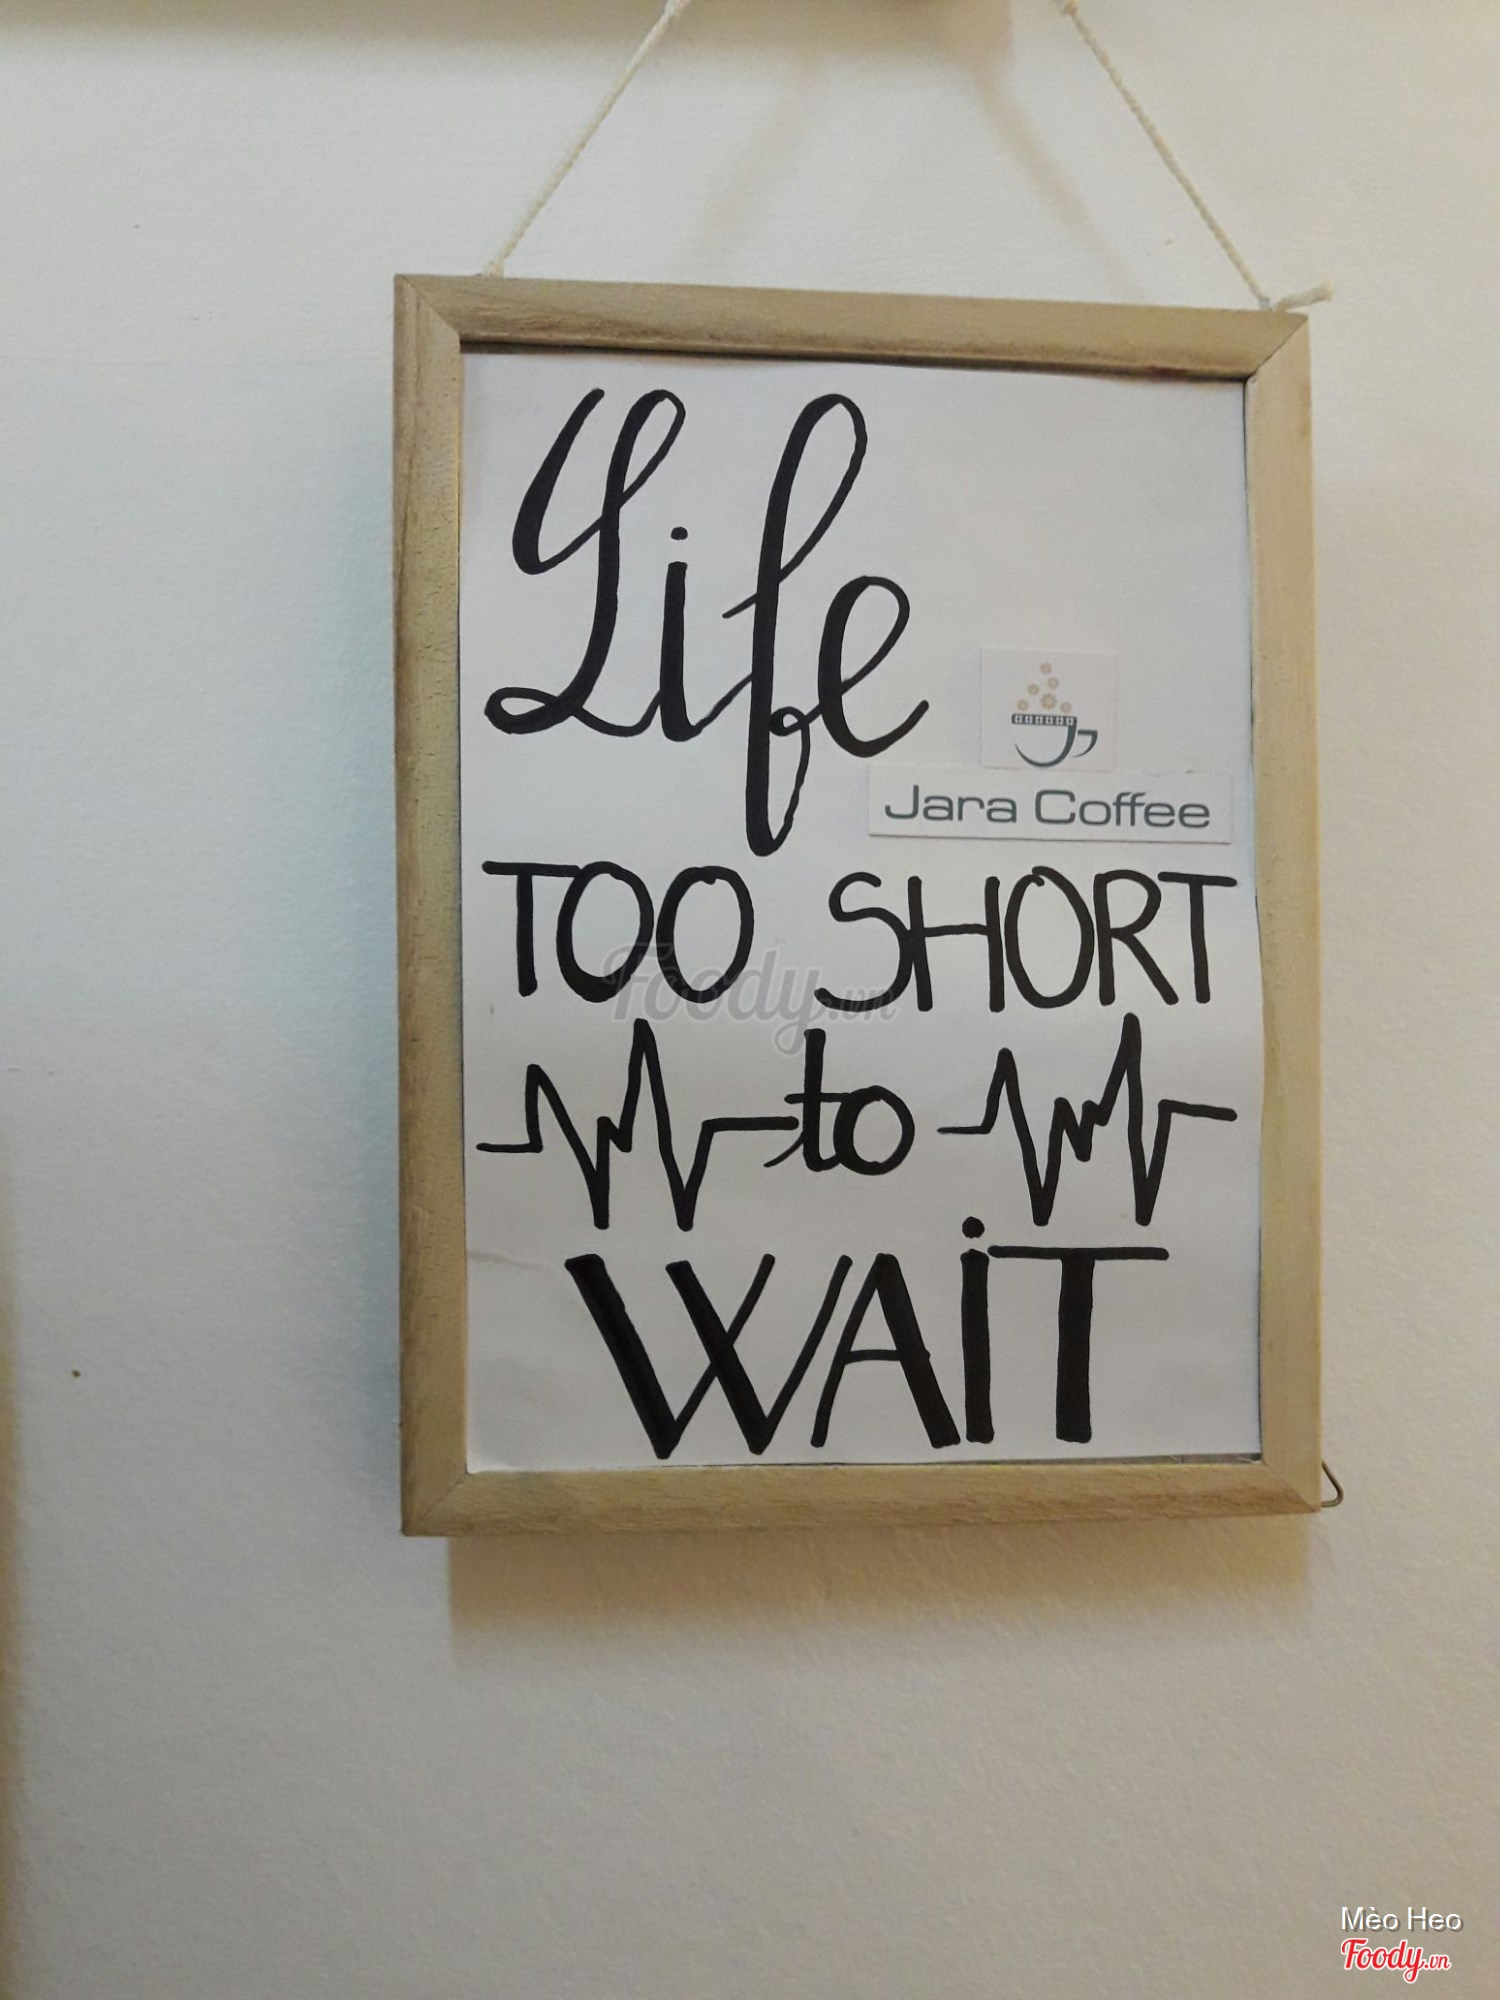 Life
Jara Coffee
TOO SHORT
Foody.vn
to
WAiT
Mèo Heo
Foody.vn